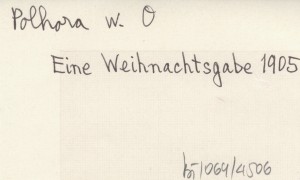 Polhora w. O
Eine Weihnachtsgabe 1905
1064/4506